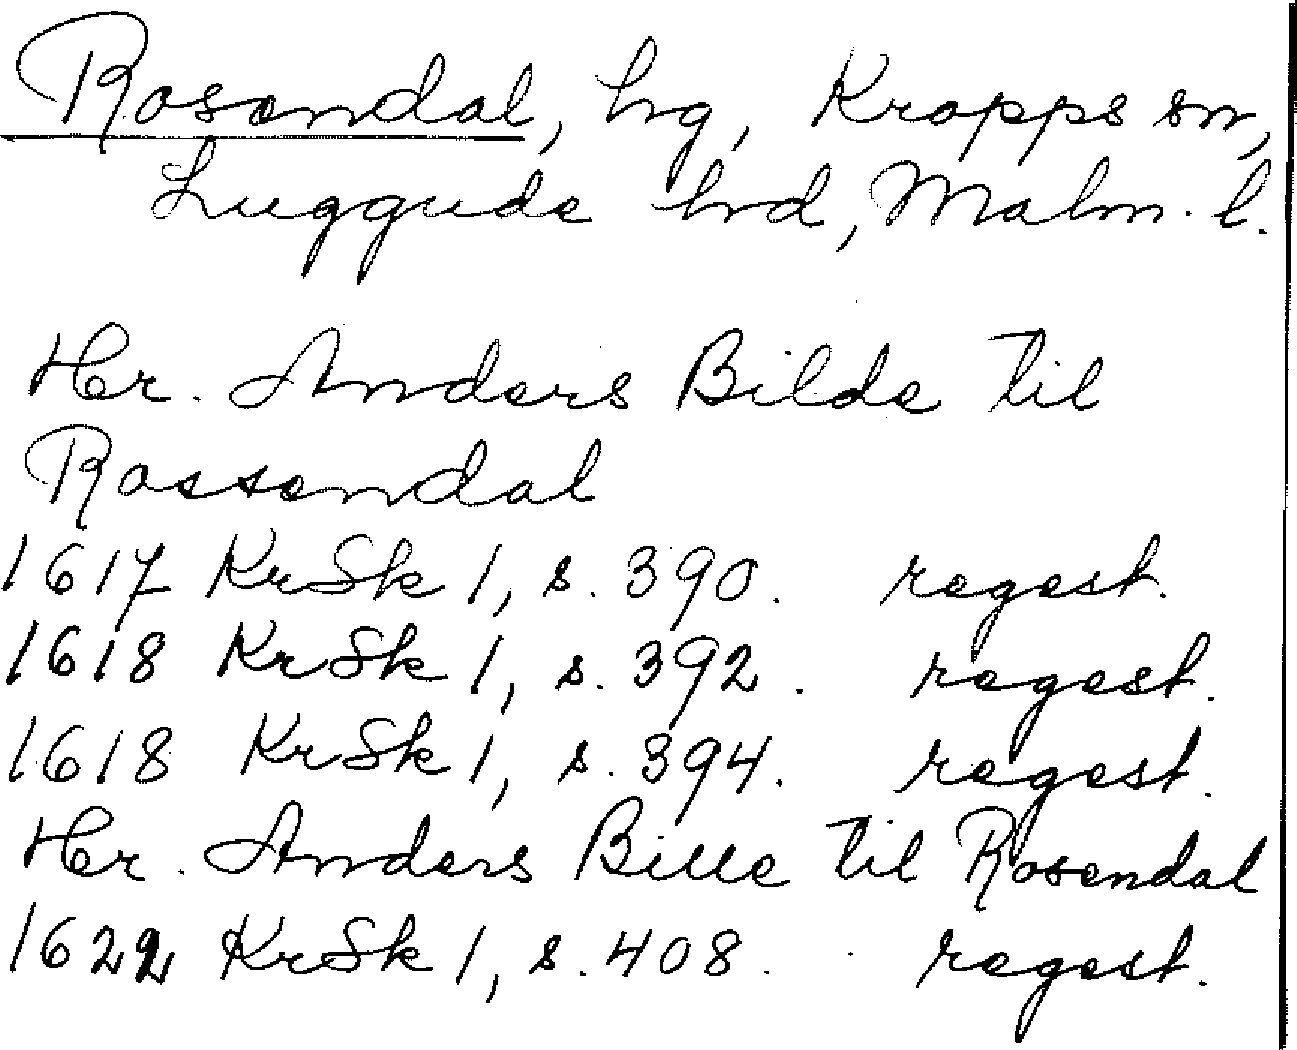 Rosendal, hg, Kropps sn,
Luggude hrd, Malm. l.
Hr. Anders Bilde til
Rossendal
1617 KrSk 1, s. 390. regest.
1618 KrSk 1, s. 392. regest.
1618 KrSk 1, s. 394. regest.
Hr. Anders Bille til Rosendal
1622 KrSk 1, s. 408. regest.